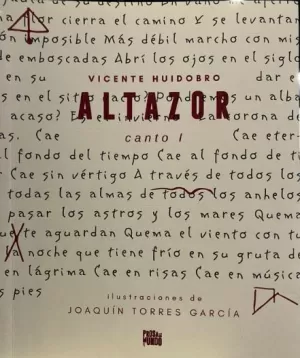 lor cierra el camino Y se levantar
ón imposible Más débil marcho con mis
de emboscadas Abrí los ojos en el siglo
en su
VICENTE HUIDOBRO
dar e
s en el
un alba
acaso?
ALTAZOR
orona de
as. Cae
canto I
Cae eter-
l fondo del tiempo Cae al fondo de ti
Cae sin vértigo A través de todos los
todas las almas de todos los anhelos
pasar los astros y los mares Quema
te aguardan Quema el viento con tu
a noche que tiene frío en su gruta de
en lágrima Cae en risas Cae en música
s pies
ilustraciones de
JOAQUÍN TORRES GARCÍA
PROSA
MUNDO